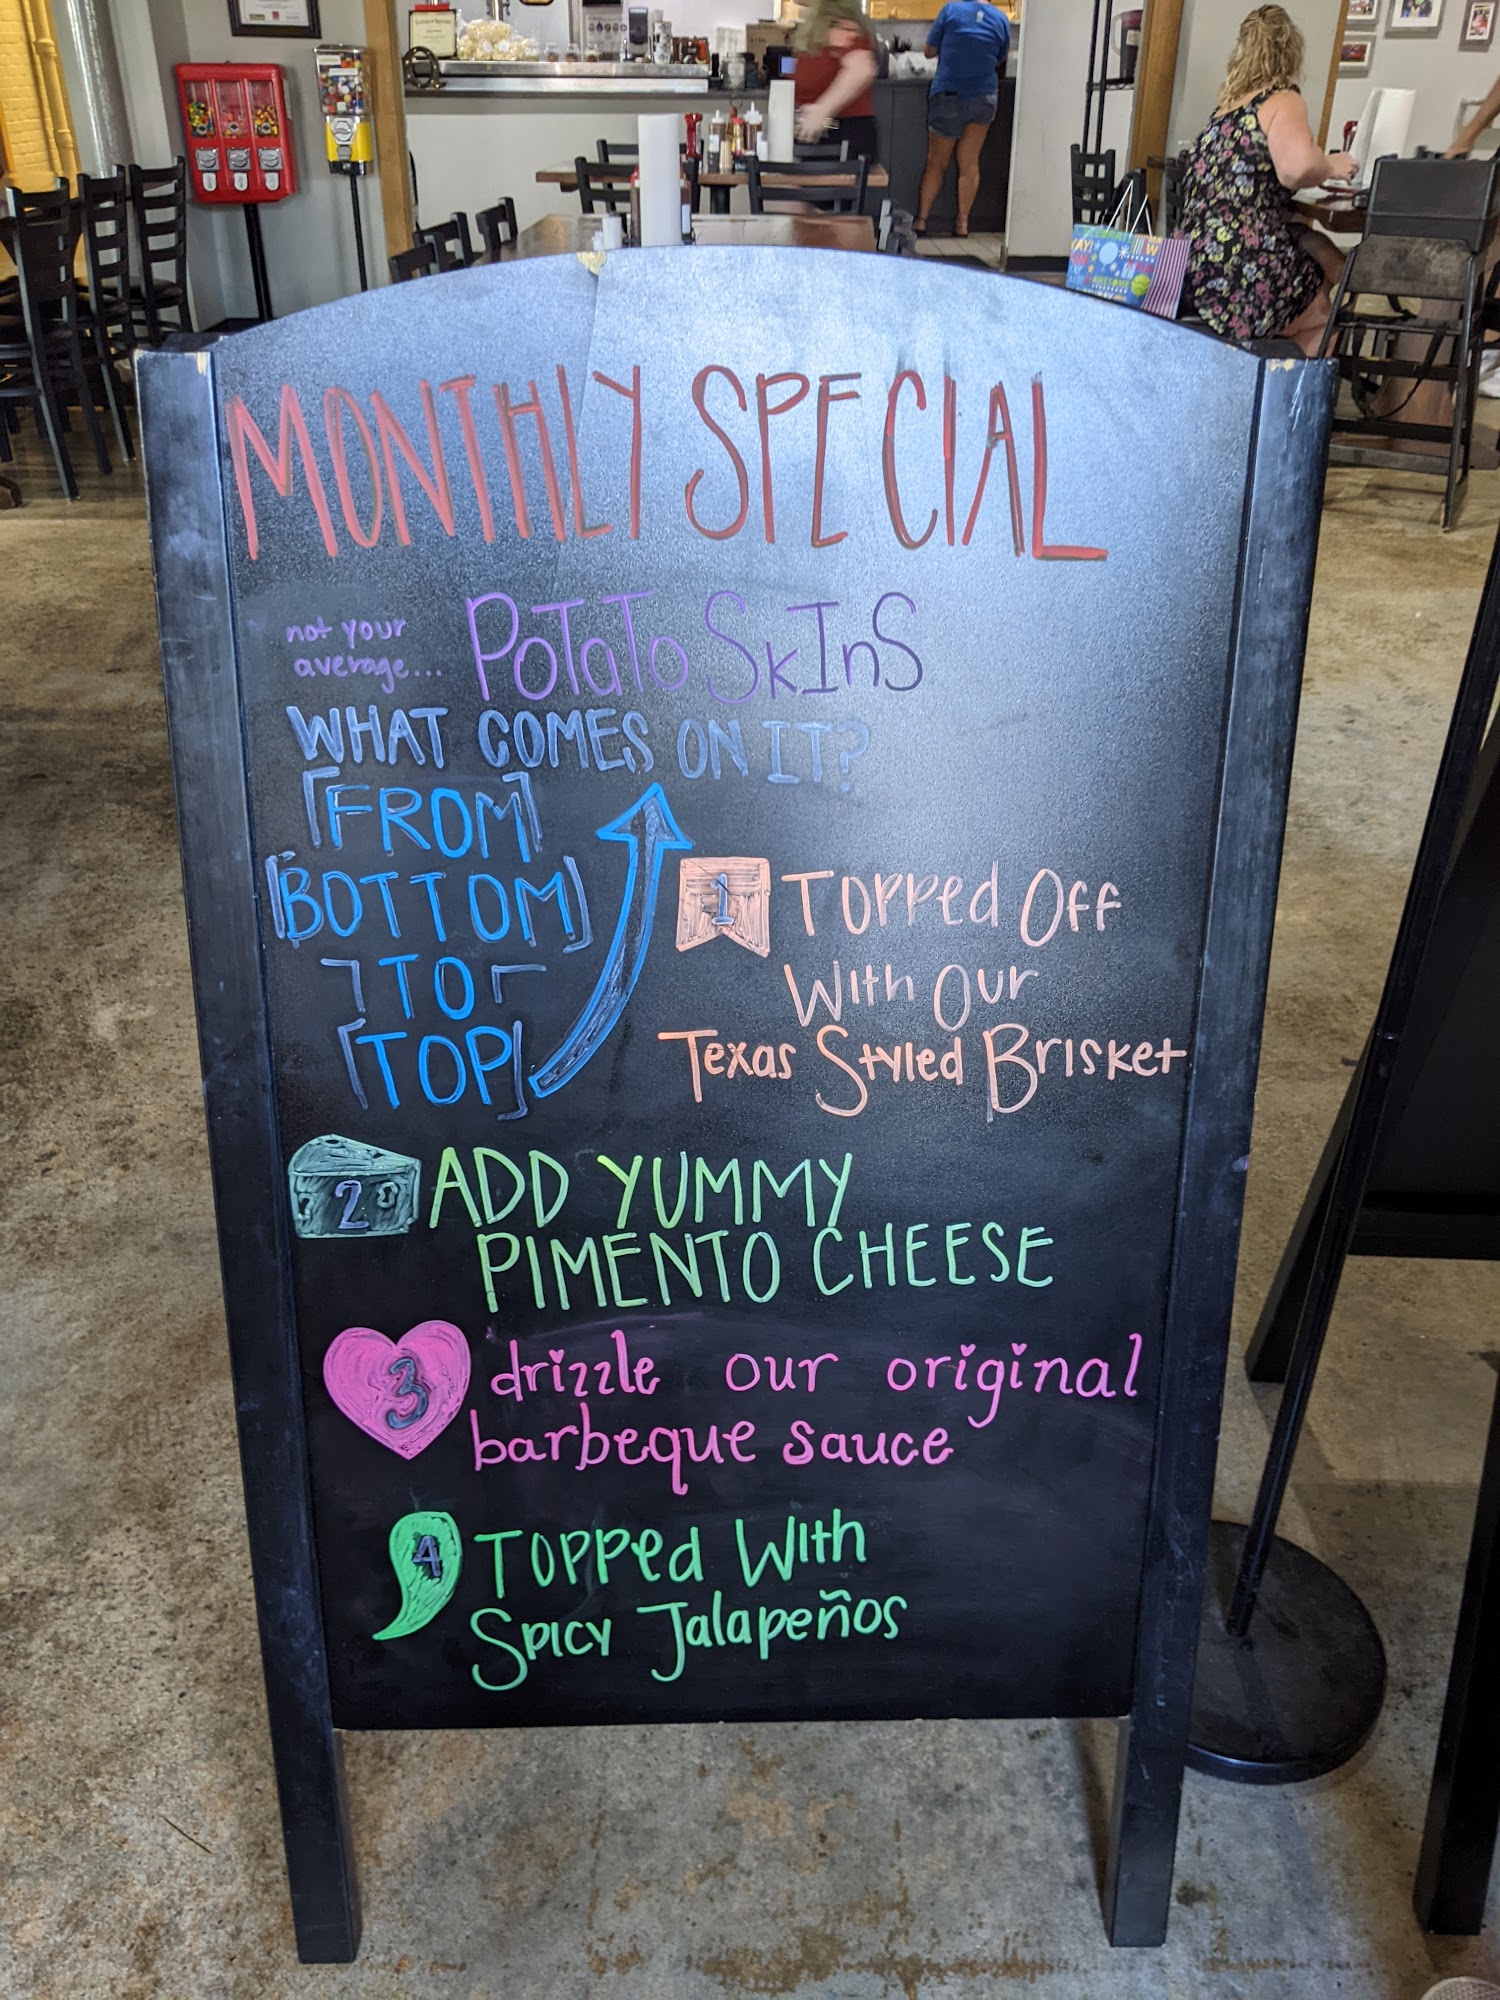 MONTHLY SPECIAL
not your
average...
POTATO SKINS
WHAT COMES ON IT?
[FROM]
[BOTTOM]
TO
[TOP]
1 TOPPED OFF
WITH OUR
TEXAS STYLED BRISKET
2 ADD YUMMY
PIMENTO CHEESE
3 drizzle our original
barbeque sauce
4 TOPPED WITH
SPICY JALAPEÑOS